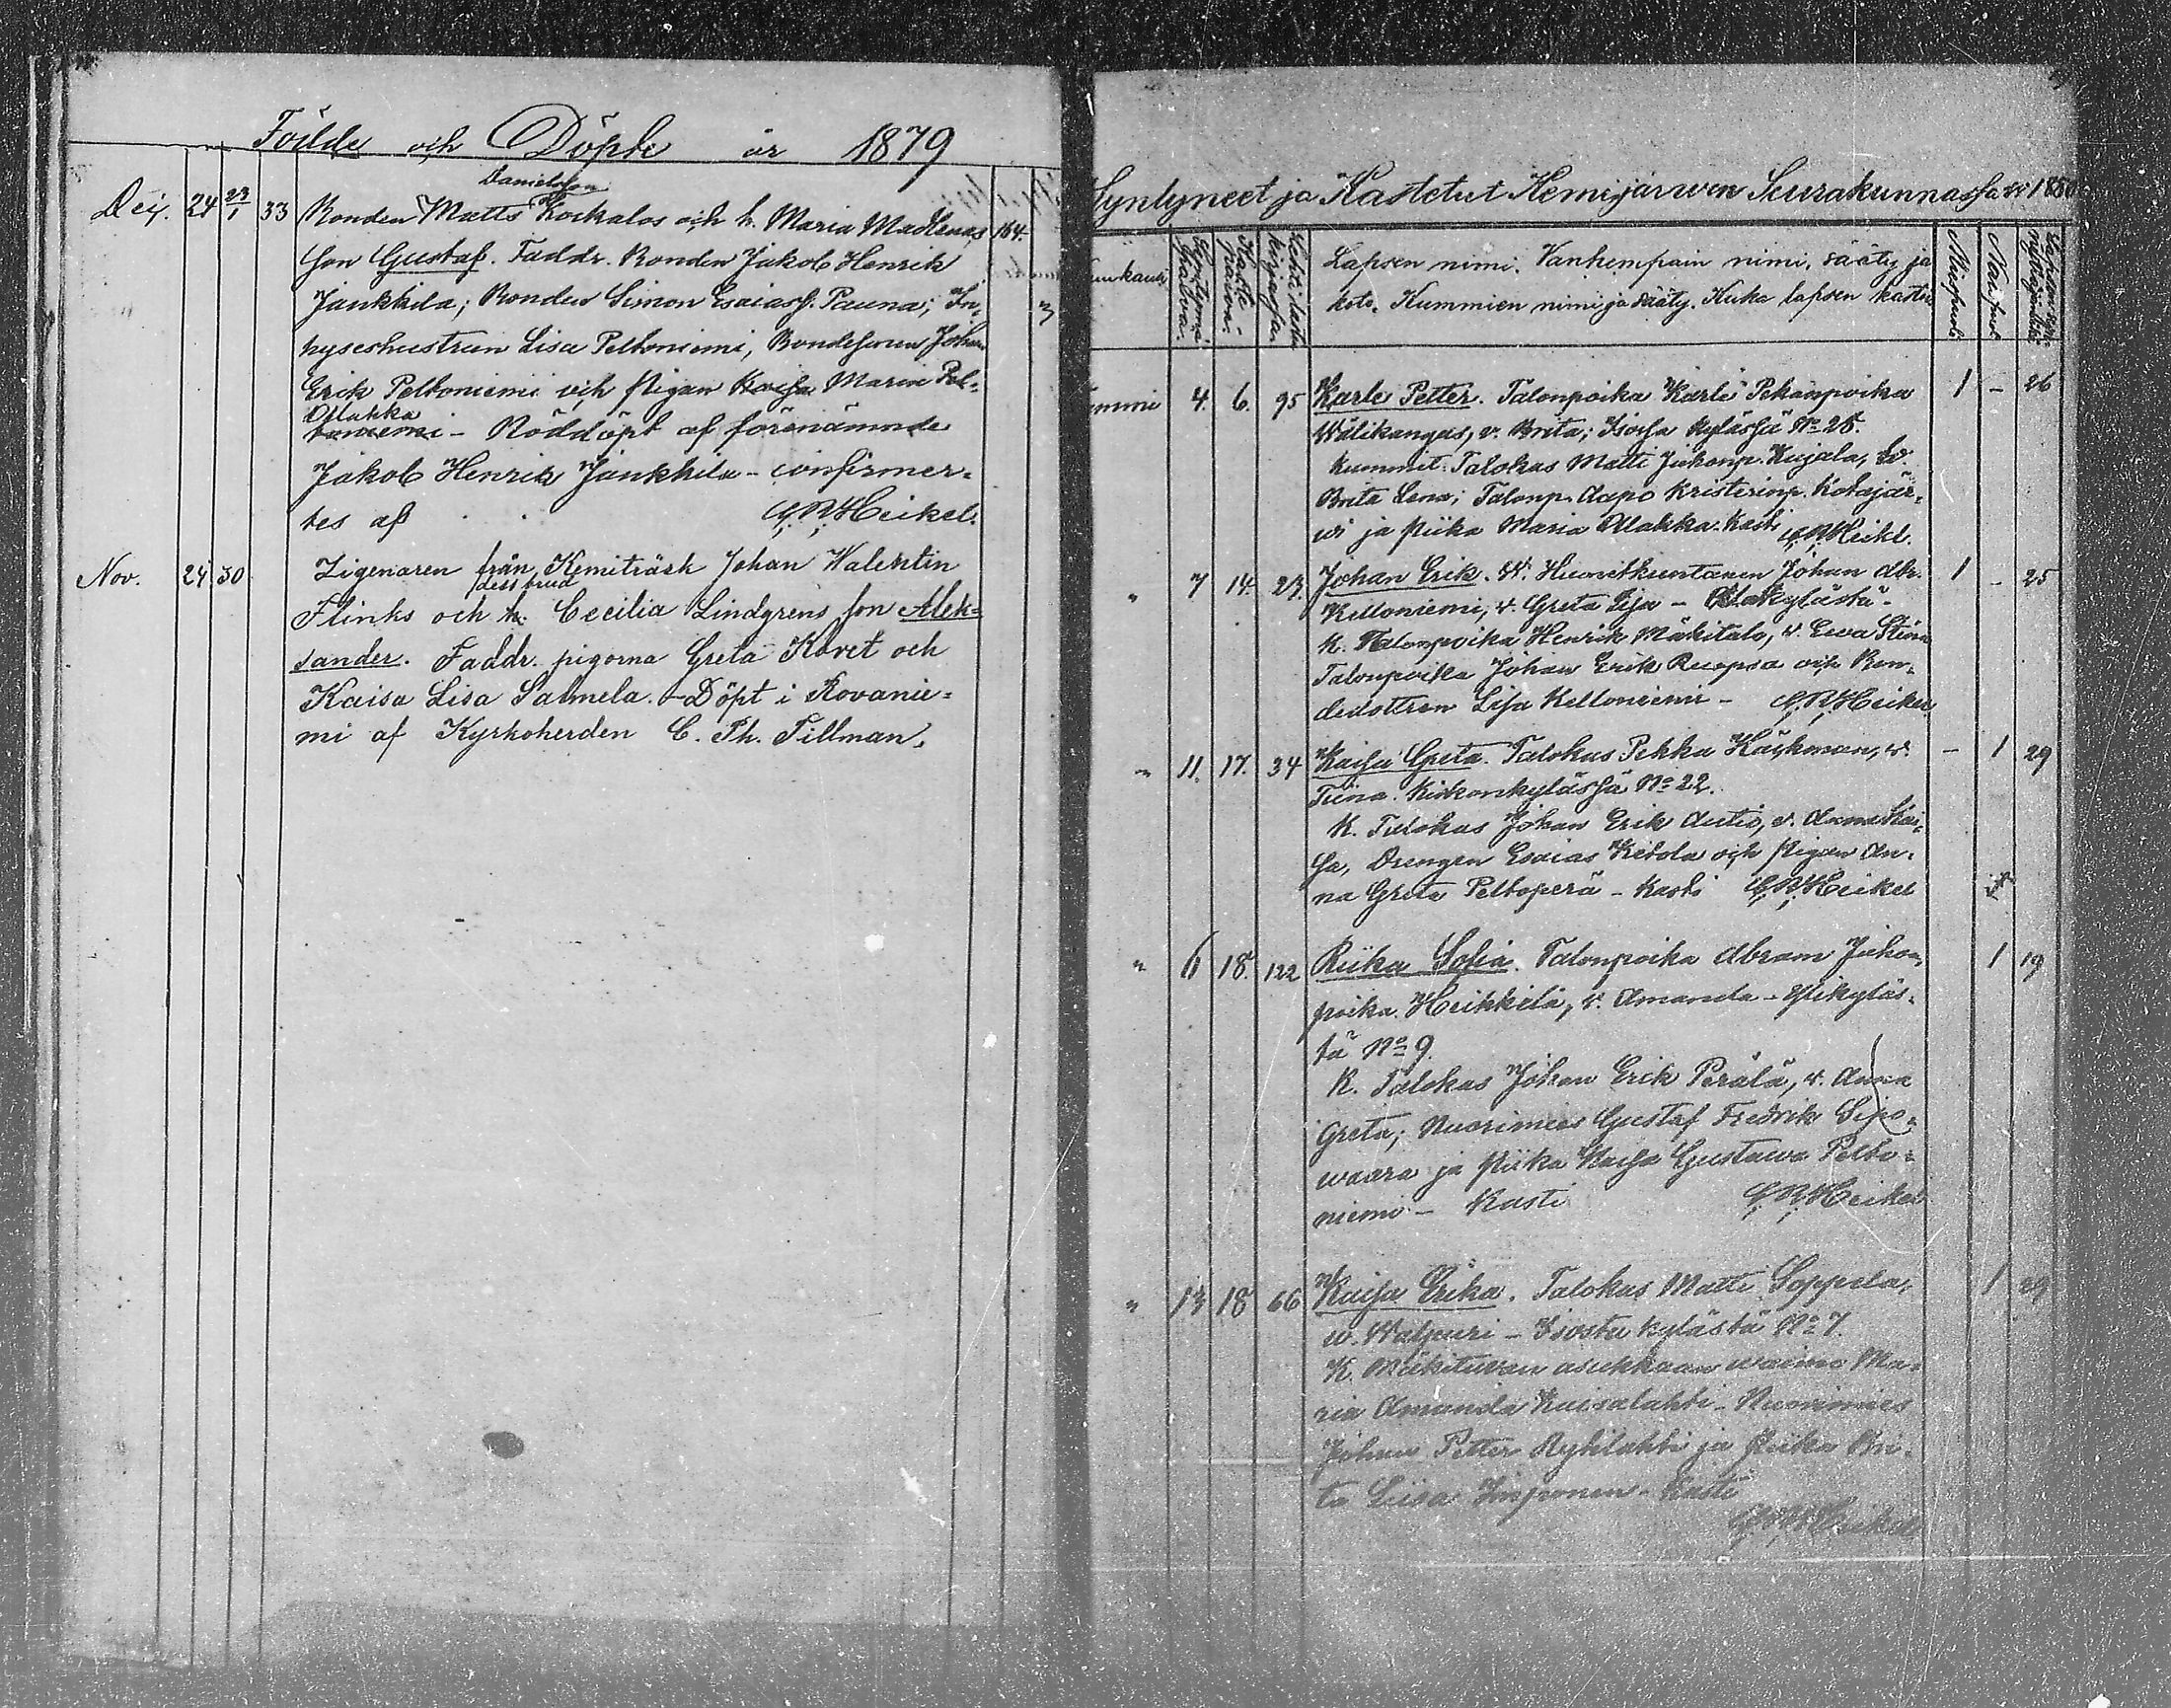 Födde och Döpte år 1879
Danielsson
Dec. 24 23/1 33 Bonden Matts Kockalos och h. Maria Madlenas 164.
son Gustaf. Faddr. Bonden Jakob Henrik
Jankkila; Bonden Simon Esaiass. Pauna; In-
hyseshustrun Lisa Peltoniemi, Bondesonen Johan
Erik Peltoniemi och pigan Kaisa Maria Pel-
Ollakka
toniemi - Nöddöpt af förenämnde
Jakob Henrik Jankkila - confirmer-
tes af Heikel.
Nov. 24 30 Zigenaren från Kemiträsk Johan Walentin
dess brud
Flinks och h. Cecilia Lindgrens son Alek-
sander. Faddr. pigorna Greta Kovet och
Kaisa Lisa Salmela. - Döpt i Rovanie-
mi af Kyrkoherden C. Ph. Tillman.
Syntyneet ja Kastetut Kemijärwen Seurakunnassa v. 1880
Lapsen nimi. Vanhempain nimi, sääty ja
koto. Kummien nimi ja sääty. Kuka lapsen kasti
Miespuoli Naispuol.
4. 6. 95 Karle Petter. Talonpoika Karle Pekanpoika 1 - 26
Wälikangas, v. Brita; Isossa kylässä No 28.
Kummit: Talokas Matti Juhonp. Kujala, w.
Brita Lena; Talonp. Aapo Kristerinp. Kotajär-
vi ja piika Maria Ollakka. Kasti Heikel.
" 7 14. 23. Johan Erik. Johan Abr. 1 - 25
Kelloniemi, v. Greta Lisa -
K. Talonpoika Henrik Mäkitalo, v. Eewa Stina
Talonpoika Johan Erik Ruopsa och Bon-
dedottren Lisa Kelloniemi - Heikel
" 11. 17. 34 Kaisa Greta. Talokas Pekka Käckman, v. - 1 29
Tiina. Kirkonkylässä No 22.
K. Talokas Johan Erik Autio, v. Anna Kai-
sa, Drengen Esaias Ketola och pigan An-
na Greta Peltoperä - Kasti Heikel
" 11 18. 122 Riika Sofia. Talonpoika Abram Juhon- 1 19
poika Heikkilä, v. Amanda - Ylikyläs-
tä No 9.
K. Talokas Johan Erik Perälä, v. Anna
Greta; Nuorimies Gustaf Fredrik Sipo-
waara ja piika Kaisa Gustawa Pelto-
niemi - Kasti Heikel
" 13 18 66 Kaisa Erika. Talokas Matti Soppela, 1 29
w. Walpuri - Isosta kylästä No 7.
K. Mäkituvan asukkaan waimo Ma-
ria Amanda Kaisalahti - Nuorimies
Johan Petter Kytilahti ja piika Bri-
ta Liisa Imponen - Kasti
Heikel